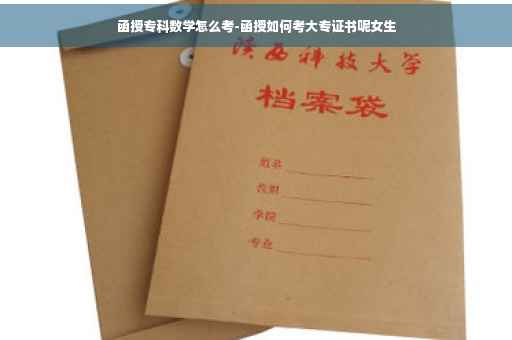 函授专科数学怎么考-函授如何考大专证书呢女生
陕西科技大学
档案袋
姓名
学院
专业